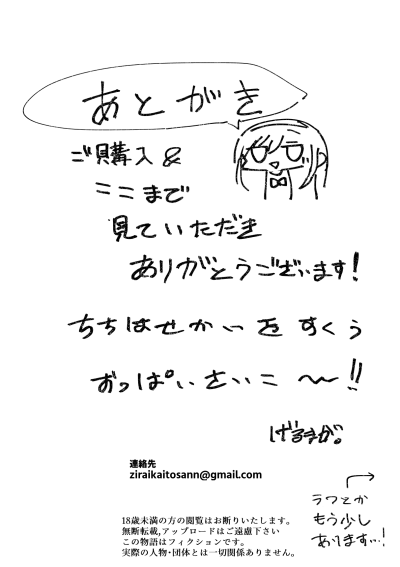 あとがき
ご購入&
ここまで
見ていただき
ありがとうございます!
ちちはせかいをすくう
おっぱいさいこ〜〜!!
連絡先
ziraikaitosann@gmail.com
ラフとか
もう少し
あります…!
18歳未満の方の閲覧はお断りいたします。
無断転載,アップロードはご遠慮下さい
この物語はフィクションです。
実際の人物・団体とは一切関係ありません。